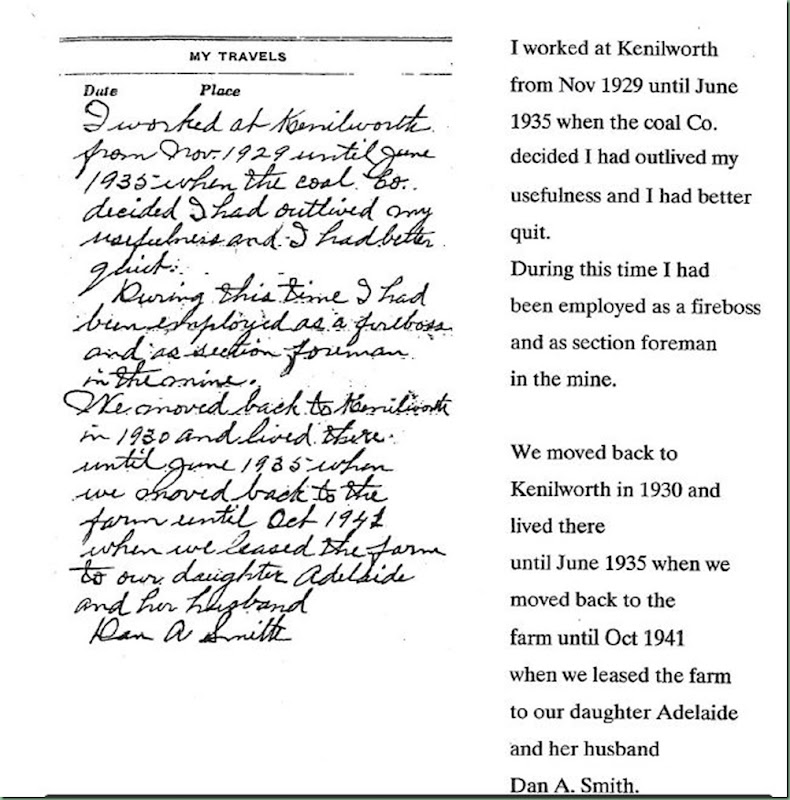 MY TRAVELS
Date Place
I worked at Kenilworth
from Nov. 1929 until June
1935 when the coal Co.
decided I had outlived my
usefulness and I had better
quit.
During this time I had
been employed as a fireboss
and as section foreman
in the mine.
We moved back to Kenilworth
in 1930 and lived there
until June 1935 when
we moved back to the
farm until Oct 1941
when we leased the farm
to our daughter Adelaide
and her husband
Dan A Smith
I worked at Kenilworth
from Nov 1929 until June
1935 when the coal Co.
decided I had outlived my
usefulness and I had better
quit.
During this time I had
been employed as a fireboss
and as section foreman
in the mine.
We moved back to
Kenilworth in 1930 and
lived there
until June 1935 when we
moved back to the
farm until Oct 1941
when we leased the farm
to our daughter Adelaide
and her husband
Dan A. Smith.